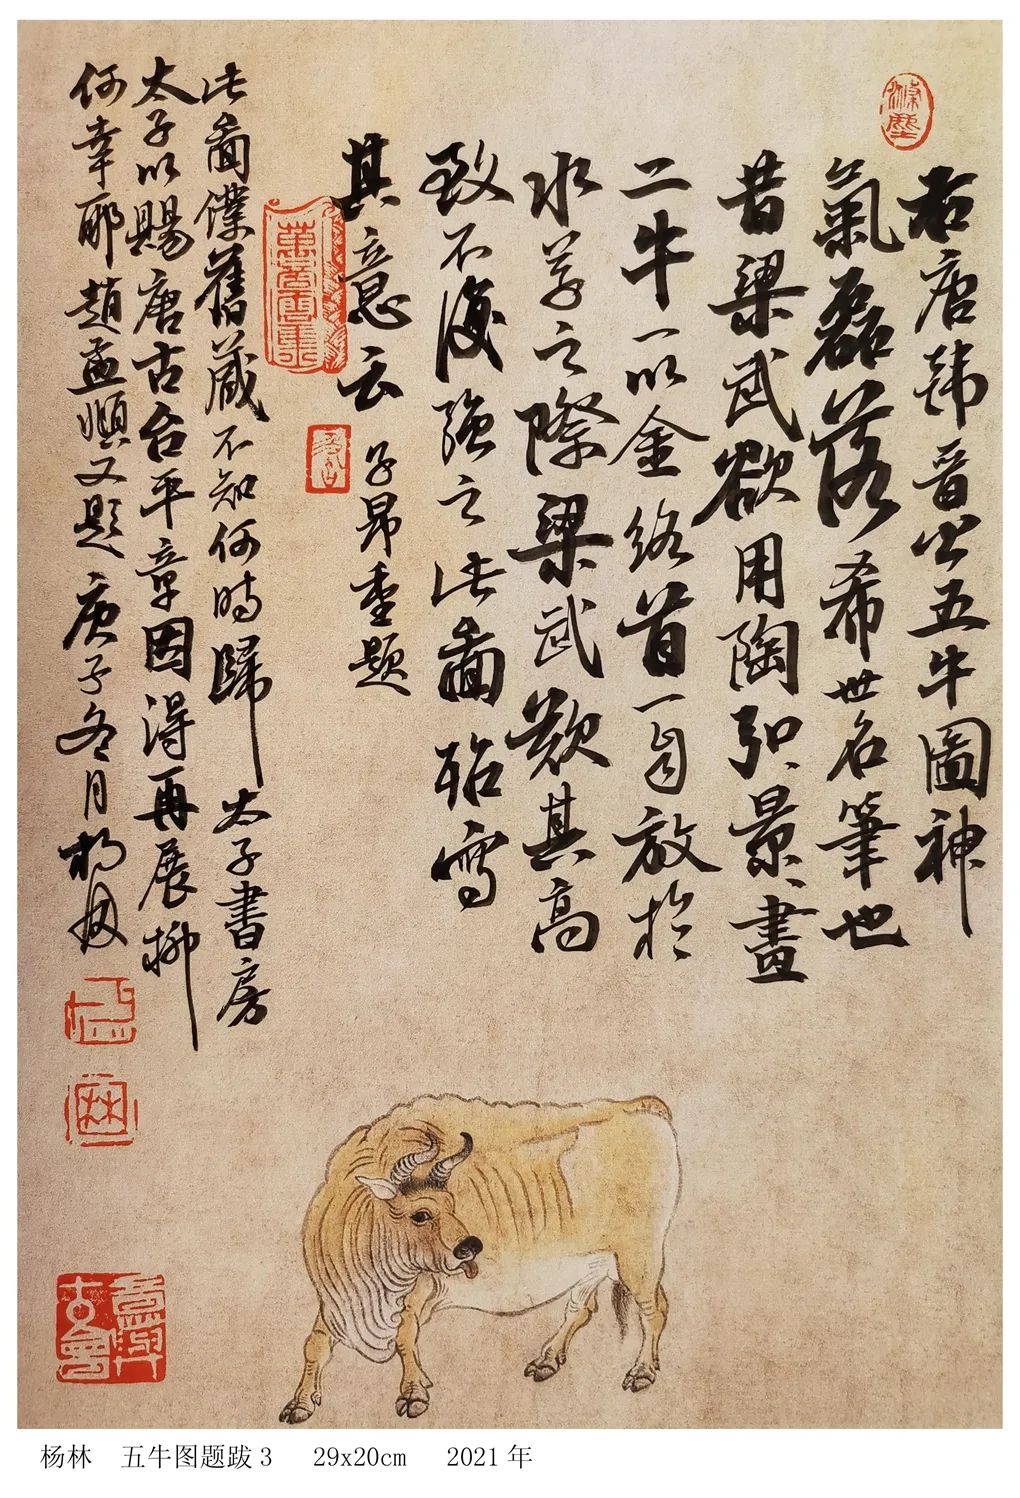 右唐韓晋公五牛圖神
氣磊落希世名筆也
昔梁武欲用陶弘景畫
二牛一以金絡首一自放於
水草之際梁武歎其高
致不復強之此圖殆寫
其意云 子昂重題
此圖僕舊藏不知何時歸 太子書房
太子以賜唐古台平章因得再展抑
何幸耶趙孟頫又題 庚子冬月杨林
杨林 五牛图题跋3 29x20cm 2021年